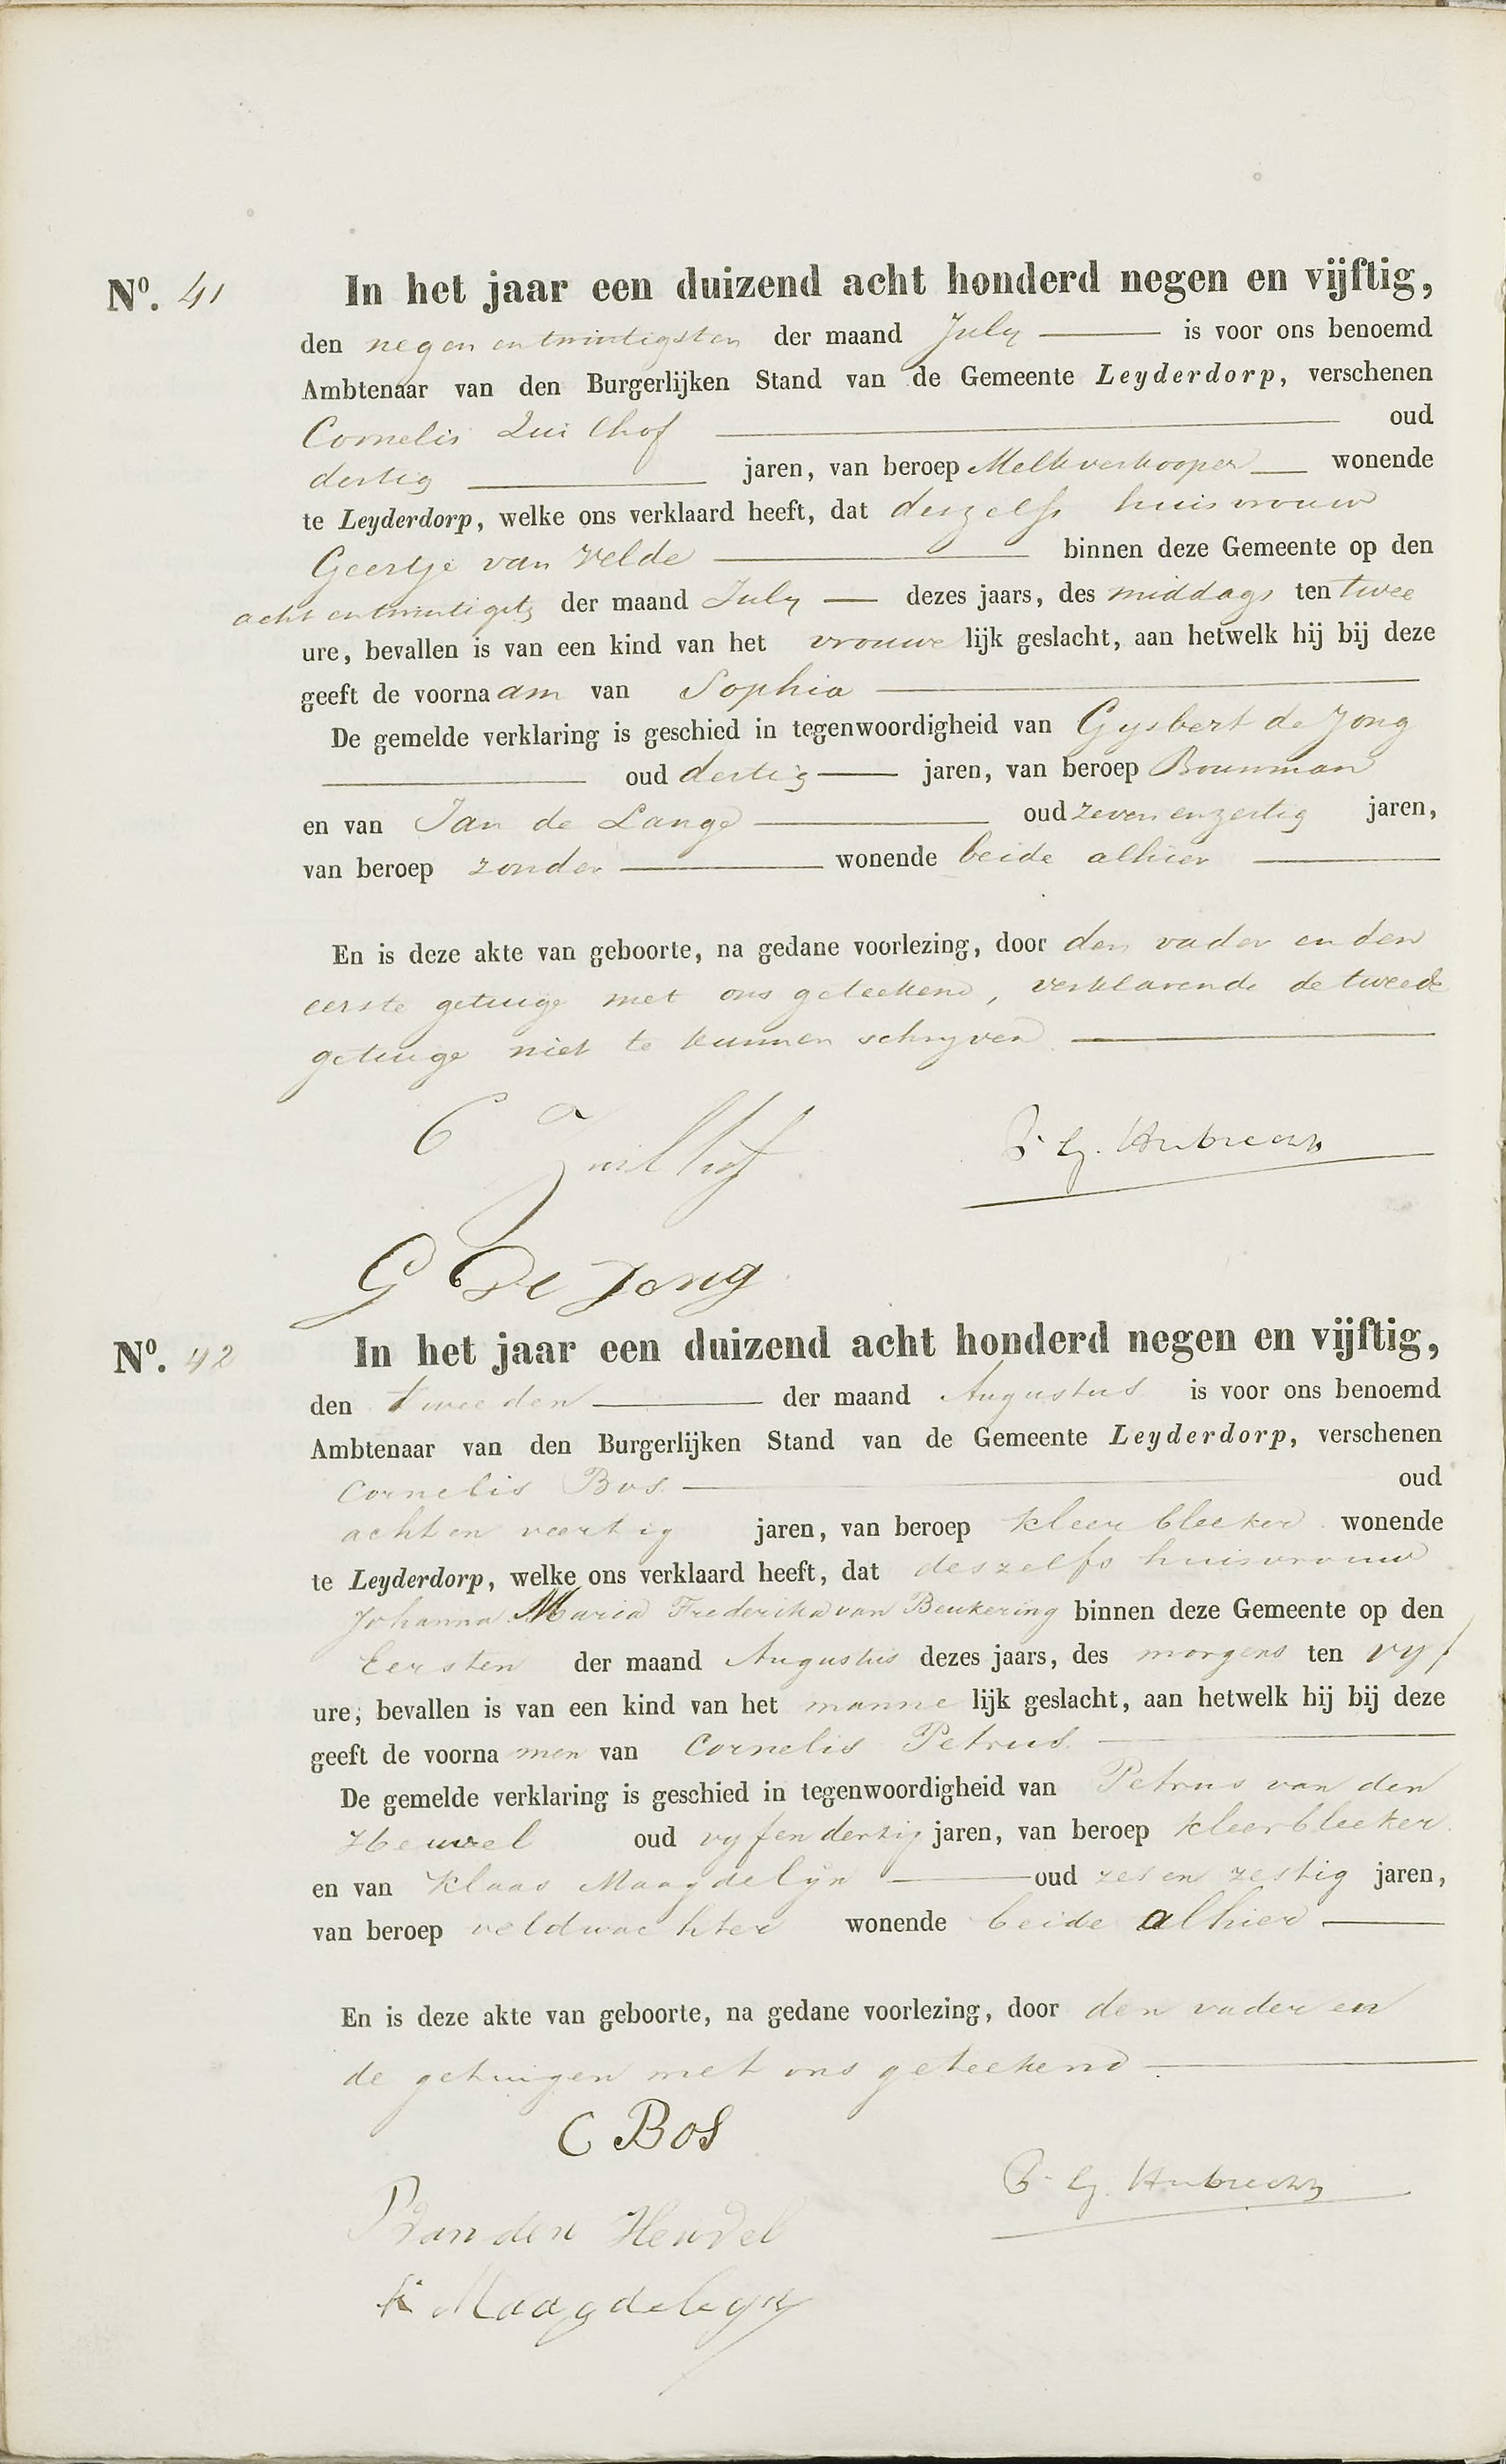 Nº. 41 In het jaar een duizend acht honderd negen en vijftig,
den negen en twintigsten der maand July is voor ons benoemd
Ambtenaar van den Burgerlijken Stand van de Gemeente Leyderdorp, verschenen
Cornelis Zuilhof oud
dertig jaren, van beroep Melkverkooper wonende
te Leyderdorp, welke ons verklaard heeft, dat deszelfs huisvrouw
Geertje van Velde binnen deze Gemeente op den
acht en twintigsten der maand July dezes jaars, des middags ten twee
ure, bevallen is van een kind van het vrouwelijk geslacht, aan hetwelk hij bij deze
geeft de voornaam van Sophia
De gemelde verklaring is geschied in tegenwoordigheid van Gysbert de Jong
oud dertig jaren, van beroep Bouwman
en van Jan de Lange oud zeven en zestig jaren,
van beroep zonder wonende beide alhier
En is deze akte van geboorte, na gedane voorlezing, door den vader en den
eerste getuige met ons geteekend, verklarende de tweede
getuige niet te kunnen schryven
C Zuilhof
G De Jong
Nº. 42 In het jaar een duizend acht honderd negen en vijftig,
den tweeden der maand Augustus is voor ons benoemd
Ambtenaar van den Burgerlijken Stand van de Gemeente Leyderdorp, verschenen
Cornelis Bos oud
acht en veertig jaren, van beroep kleerbleeker wonende
te Leyderdorp, welke ons verklaard heeft, dat deszelfs huisvrouw
Johanna Maria Frederika van Beukering binnen deze Gemeente op den
Eersten der maand Augustus dezes jaars, des morgens ten vyf
ure, bevallen is van een kind van het mannelijk geslacht, aan hetwelk hij bij deze
geeft de voornamen van Cornelis Petrus
De gemelde verklaring is geschied in tegenwoordigheid van Petrus van den
Heuvel oud vyf en dertig jaren, van beroep kleerbleeker
en van Klaas Maagdelijn oud zes en zestig jaren,
van beroep veldwachter wonende beide alhier
En is deze akte van geboorte, na gedane voorlezing, door den vader en
de getuigen met ons geteekend
C Bos
P van den Heuvel
K Maagdelyn